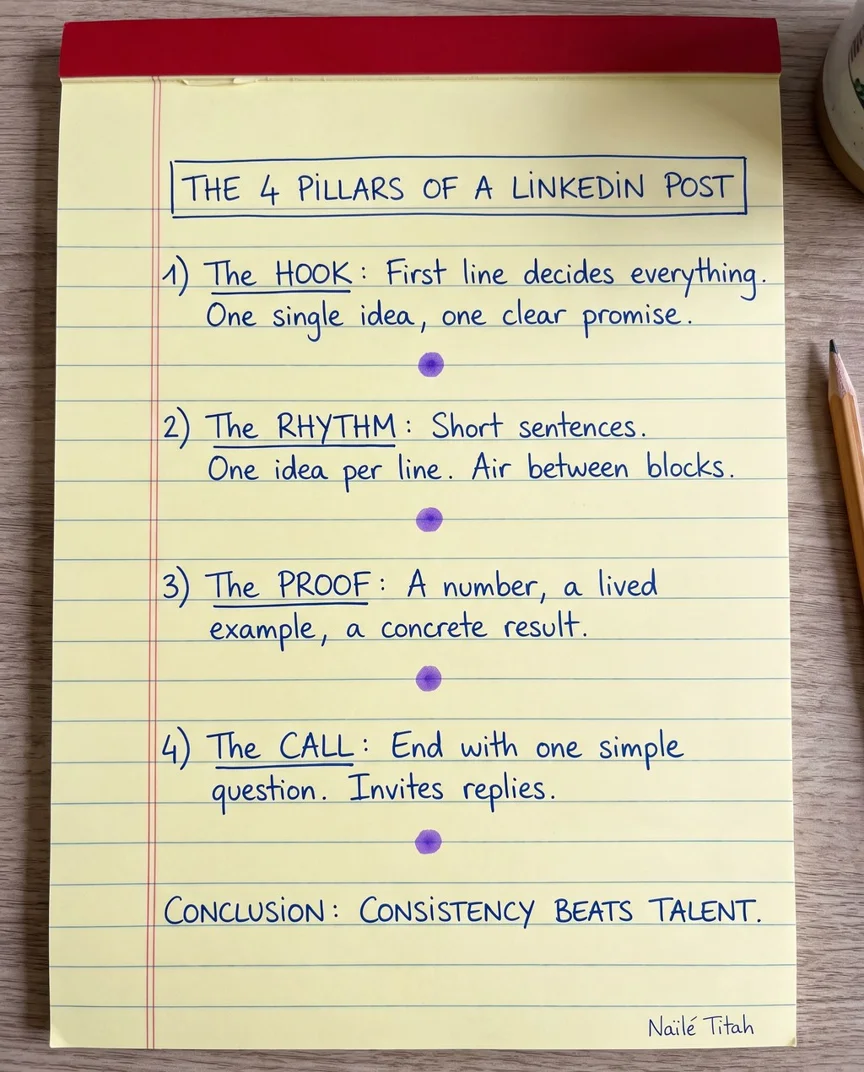 THE 4 PiLLARS OF A LiNKEDiN POST
1) The HOOK: First line decides everything.
One single idea, one clear promise.
2) The RHYTHM: Short sentences.
One idea per line. Air between blocks.
3) The PROOF: A number, a lived
example, a concrete result.
4) The CALL: End with one simple
question. Invites replies.
CONCLUSION: CONSiSTENCY BEATS TALENT.
Naïlé Titah